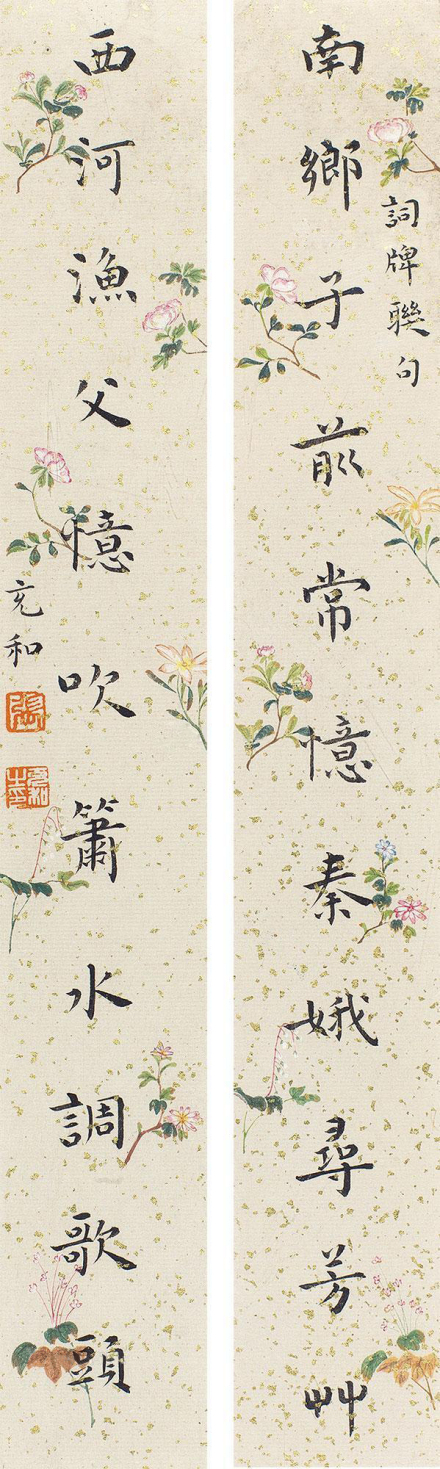 詞牌聯句
南鄉子前常憶秦娥尋芳艸
西河漁父憶吹簫水調歌頭
充和
張